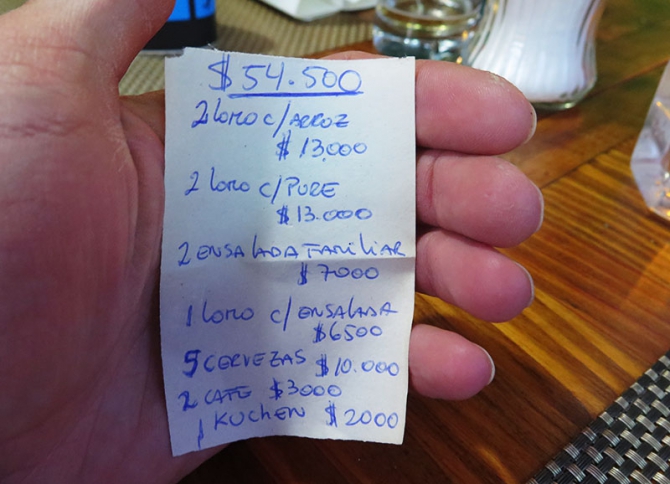 $ 54.500
2 lomo c/ARROZ
$ 13.000
2 lomo c/PURE
$ 13.000
2 ENSALADA FAMILIAR
$ 7000
1 lomo c/ENSALADA
$6500
5 CERVEZAS $10.000
2 CAFE $3000
1 KUCHEN $2000